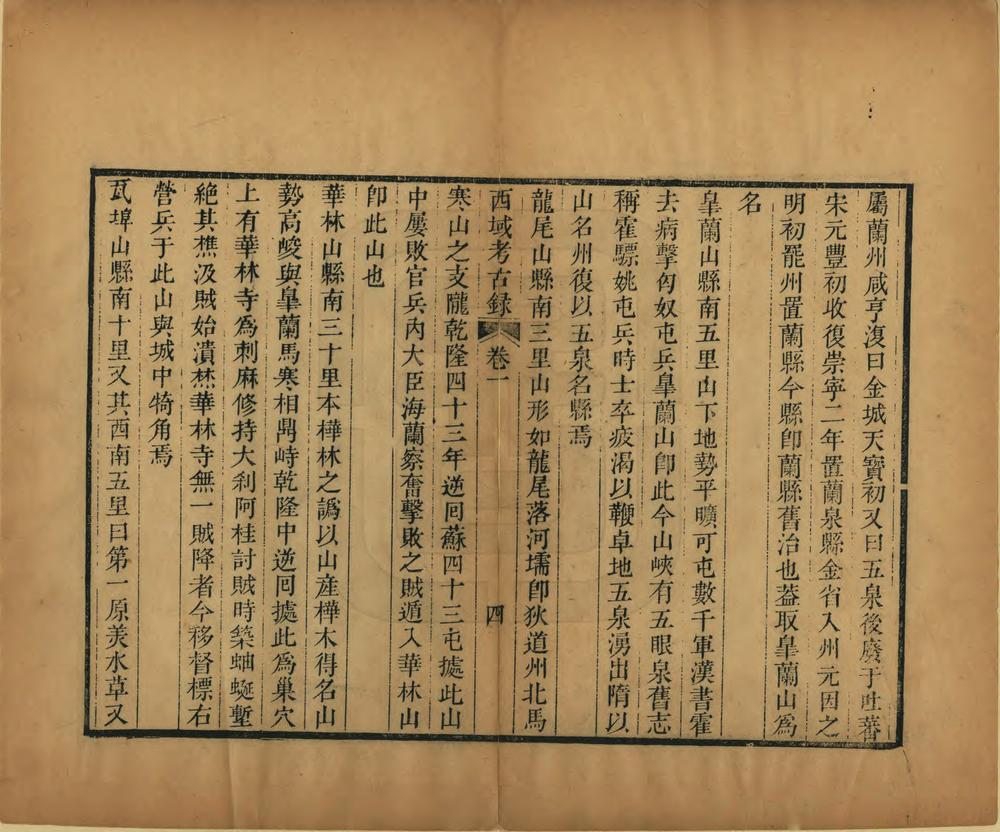 屬蘭州咸亨復曰金城天寶初又曰五泉後廢于吐蕃
宋元豐初收復崇寧二年置蘭泉縣金省入州元因之
明初罷州置蘭縣今縣卽蘭縣舊治也葢取臯蘭山爲
名
臯蘭山縣南五里山下地勢平曠可屯數千軍漢書霍
去病擊匈奴屯兵臯蘭山卽此今山峽有五眼泉舊志
稱霍驃姚屯兵時士卒疲渴以鞭卓地五泉湧出隋以
山名州復以五泉名縣焉
龍尾山縣南三里山形如龍尾落河壖卽狄道州北馬
西域考古録 卷一 四
寒山之支隴乾隆四十三年逆囘蘇四十三屯據此山
中屢敗官兵內大臣海蘭察奮擊敗之賊遁入華林山
卽此山也
華林山縣南三十里本樺林之譌以山產樺木得名山
勢高峻與臯蘭馬寒相鼎峙乾隆中逆囘據此爲巢穴
上有華林寺爲刺麻修持大刹阿桂討賊時築蚰蜒塹
絶其樵汲賊始潰焚華林寺無一賊降者今移督標右
營兵于此山與城中犄角焉
瓦埠山縣南十里又其西南五里曰第一原美水草又